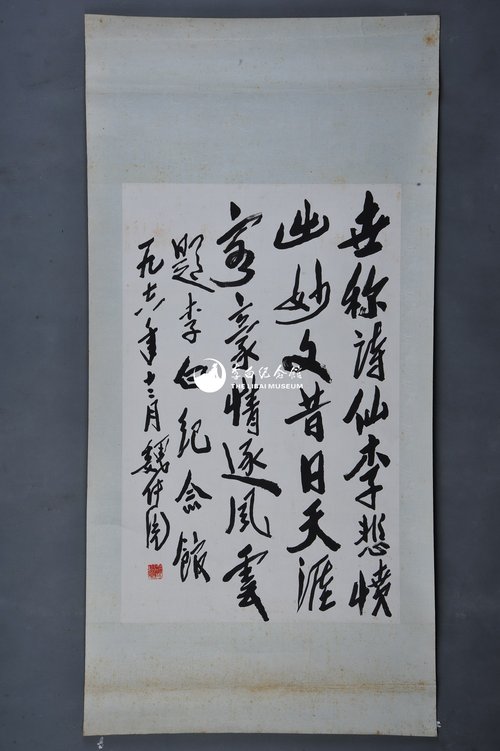 世称诗仙李悲愤
出妙文昔日天涯
客豪情逐风云
题李白纪念馆
一九七六年十二月魏传统
李白纪念馆
THE LIBAI MUSEUM